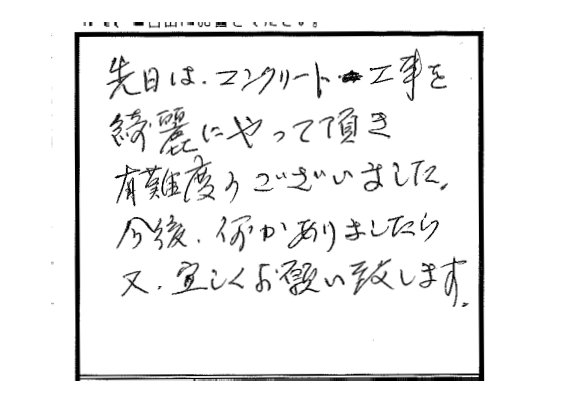 先日は、コンクリート工事を
綺麗にやって頂き
有難度うございました。
今後、何かありましたら
又、宜しくお願い致します。